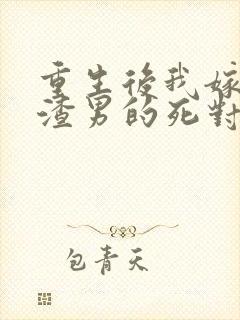 重生後我嫁
渣男的死對
包青天